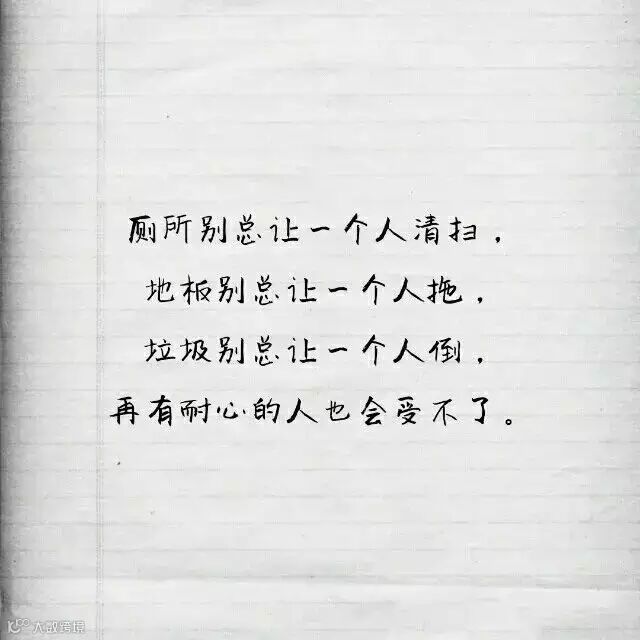 厕所别总让一个人清扫，
地板别总让一个人拖，
垃圾别总让一个人倒，
再有耐心的人也会受不了。
大数跨境